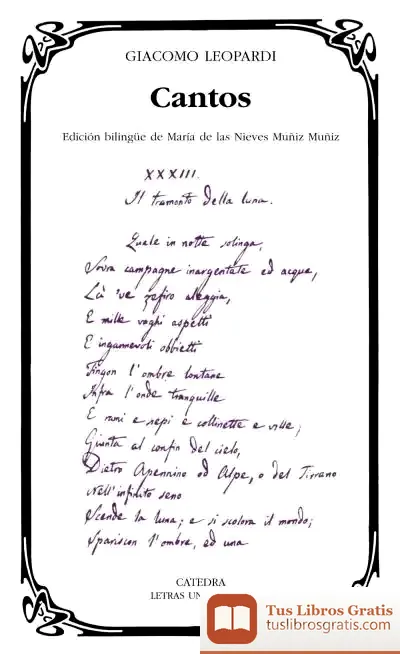 GIACOMO LEOPARDI
Cantos
Edición bilingüe de María de las Nieves Muñiz Muñiz
XXXIII.
Il tramonto della luna.
Quale in notte solinga,
Sovra campagne inargentate ed acque,
Là 've zefiro aleggia,
E mille vaghi aspetti
E ingannevoli obbietti
Fingon l'ombre lontane
Infra l'onde tranquille
E rami e sepi e collinette e ville;
Giunta al confin del cielo,
Dietro Apennino od Alpe, o del Tirreno
Nell'infinito seno
Scende la luna; e si scolora il mondo;
Spariscon l'ombre, ed una
CATEDRA
LETRAS UN
Tus Libros Gratis
tuslibrosgratis.com